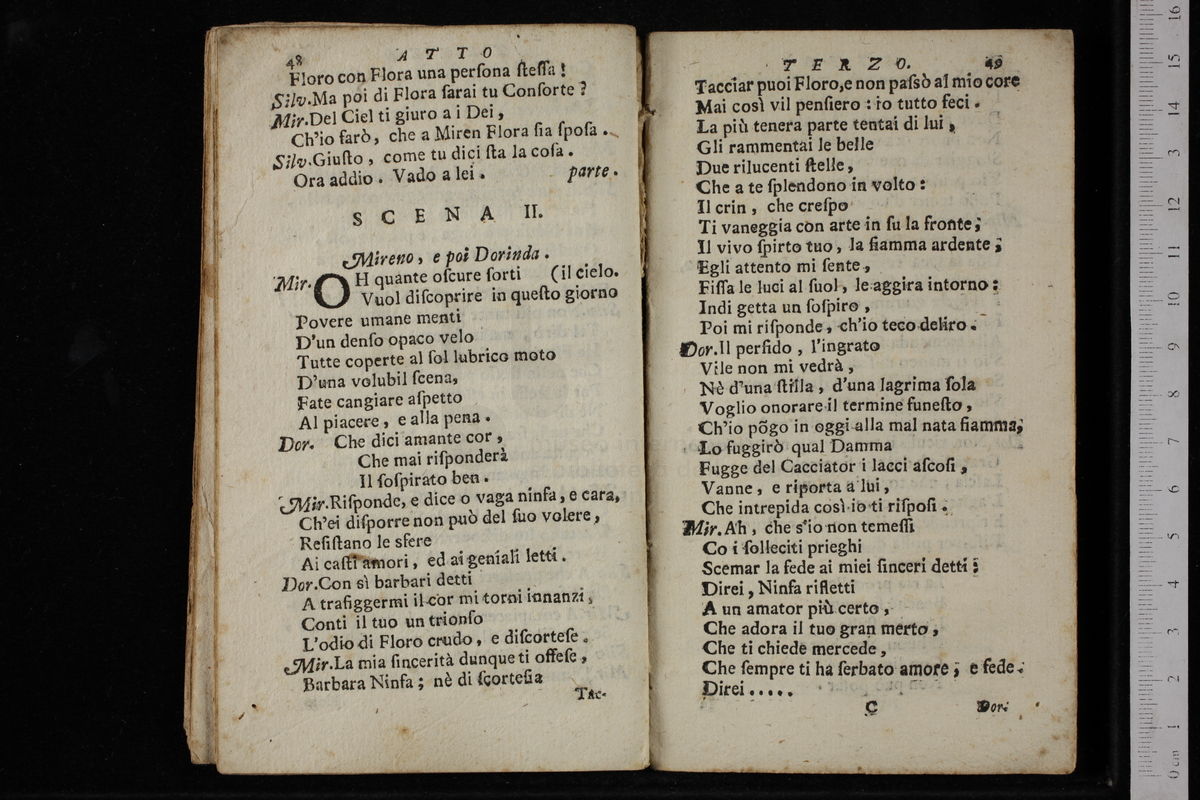 48 ATTO
Floro con Flora una perſona ſteſſa!
Silv.Ma poi di Flora ſarai tu Conſorte?
Mir.Del Ciel ti giuro a i Dei,
Ch'io farò, che a Miren Flora ſia ſpoſa.
Silv.Giuſto, come tu dici ſta la coſa.
Ora addio. Vado a lei. parte.
SCENA II.
Mireno, e poi Dorinda.
Mir.OH quante oſcure ſorti (il cielo.
Vuol diſcoprire in queſto giorno
Povere umane menti
D'un denſo opaco velo
Tutte coperte al ſol lubrico moto
D'una volubil ſcena,
Fate cangiare aſpetto
Al piacere, e alla pena.
Dor. Che dici amante cor,
Che mai riſponderà
Il ſoſpirato ben.
Mir.Riſponde, e dice o vaga ninfa, e cara,
Ch'ei diſporre non può del ſuo volere,
Reſiſtano le sfere
Ai caſti amori, ed ai geniali letti.
Dor.Con sì barbari detti
A trafiggermi il cor mi torni innanzi,
Conti il tuo un trionfo
L'odio di Floro crudo, e diſcorteſe.
Mir.La mia ſincerità dunque ti offeſe,
Barbara Ninfa; nè di ſcorteſia
Tac-
TERZO. 49
Tacciar puoi Floro,e non paſsò al mio core
Mai così vil penſiero: io tutto feci.
La più tenera parte tentai di lui,
Gli rammentai le belle
Due rilucenti ſtelle,
Che a te ſplendono in volto:
Il crin, che creſpo
Ti vaneggia con arte in ſu la fronte;
Il vivo ſpirto tuo, la fiamma ardente;
Egli attento mi ſente,
Fiſſa le luci al ſuol, le aggira intorno:
Indi getta un ſoſpiro,
Poi mi riſponde, ch'io teco deliro.
Dor.Il perfido, l'ingrato
Vile non mi vedrà,
Nè d'una ſtilla, d'una lagrima ſola
Voglio onorare il termine funeſto,
Ch'io põgo in oggi alla mal nata fiamma;
Lo fuggirò qual Damma
Fugge del Cacciator i lacci aſcoſi,
Vanne, e riporta a lui,
Che intrepida così io ti riſpoſi.
Mir.Ah, che s'io non temeſſi
Co i ſolleciti prieghi
Scemar la fede ai miei ſinceri detti;
Direi, Ninfa rifletti
A un amator più certo,
Che adora il tuo gran merto,
Che ti chiede mercede,
Che ſempre ti ha ſerbato amore, e fede.
Direi.....
C Dor.
0 cm 1 2 3 4 5 6 7 8 9 10 11 12 13 14 15 16